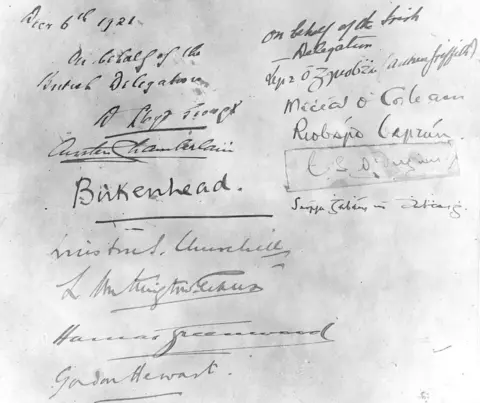 Decr 6th 1921
On behalf of the
British Delegation
D Lloyd George
Austen Chamberlain
Birkenhead.
Winston S. Churchill
L Worthington-Evans
Hamar Greenwood
Gordon Hewart.
On behalf of the Irish
Delegation
Art Ó (Arthur Griffith)
Mícheál Ó Coileain
Riobárd Bartún